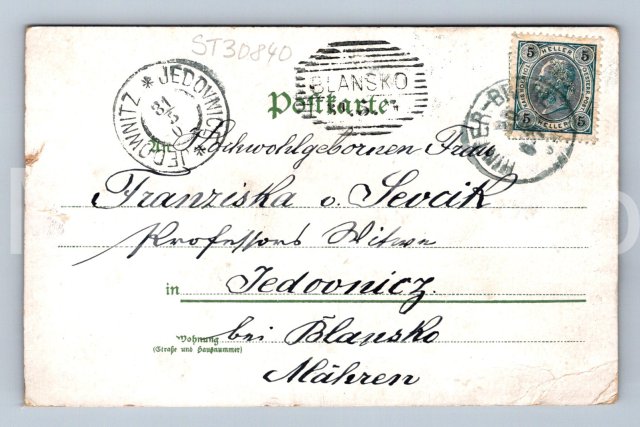 ST30840
JEDOVNICE
JEDOWNITZ
31
5
BLANSKO
Postkarte
5 HELLER 5
5 HELLER 5
An Hochwohlgebornen Frau
Franziska v. Sevcik
Professors Witwe
in Jedovnicz.
Wohnung bei Blansko
(Straße und Hausnummer)
Mähren